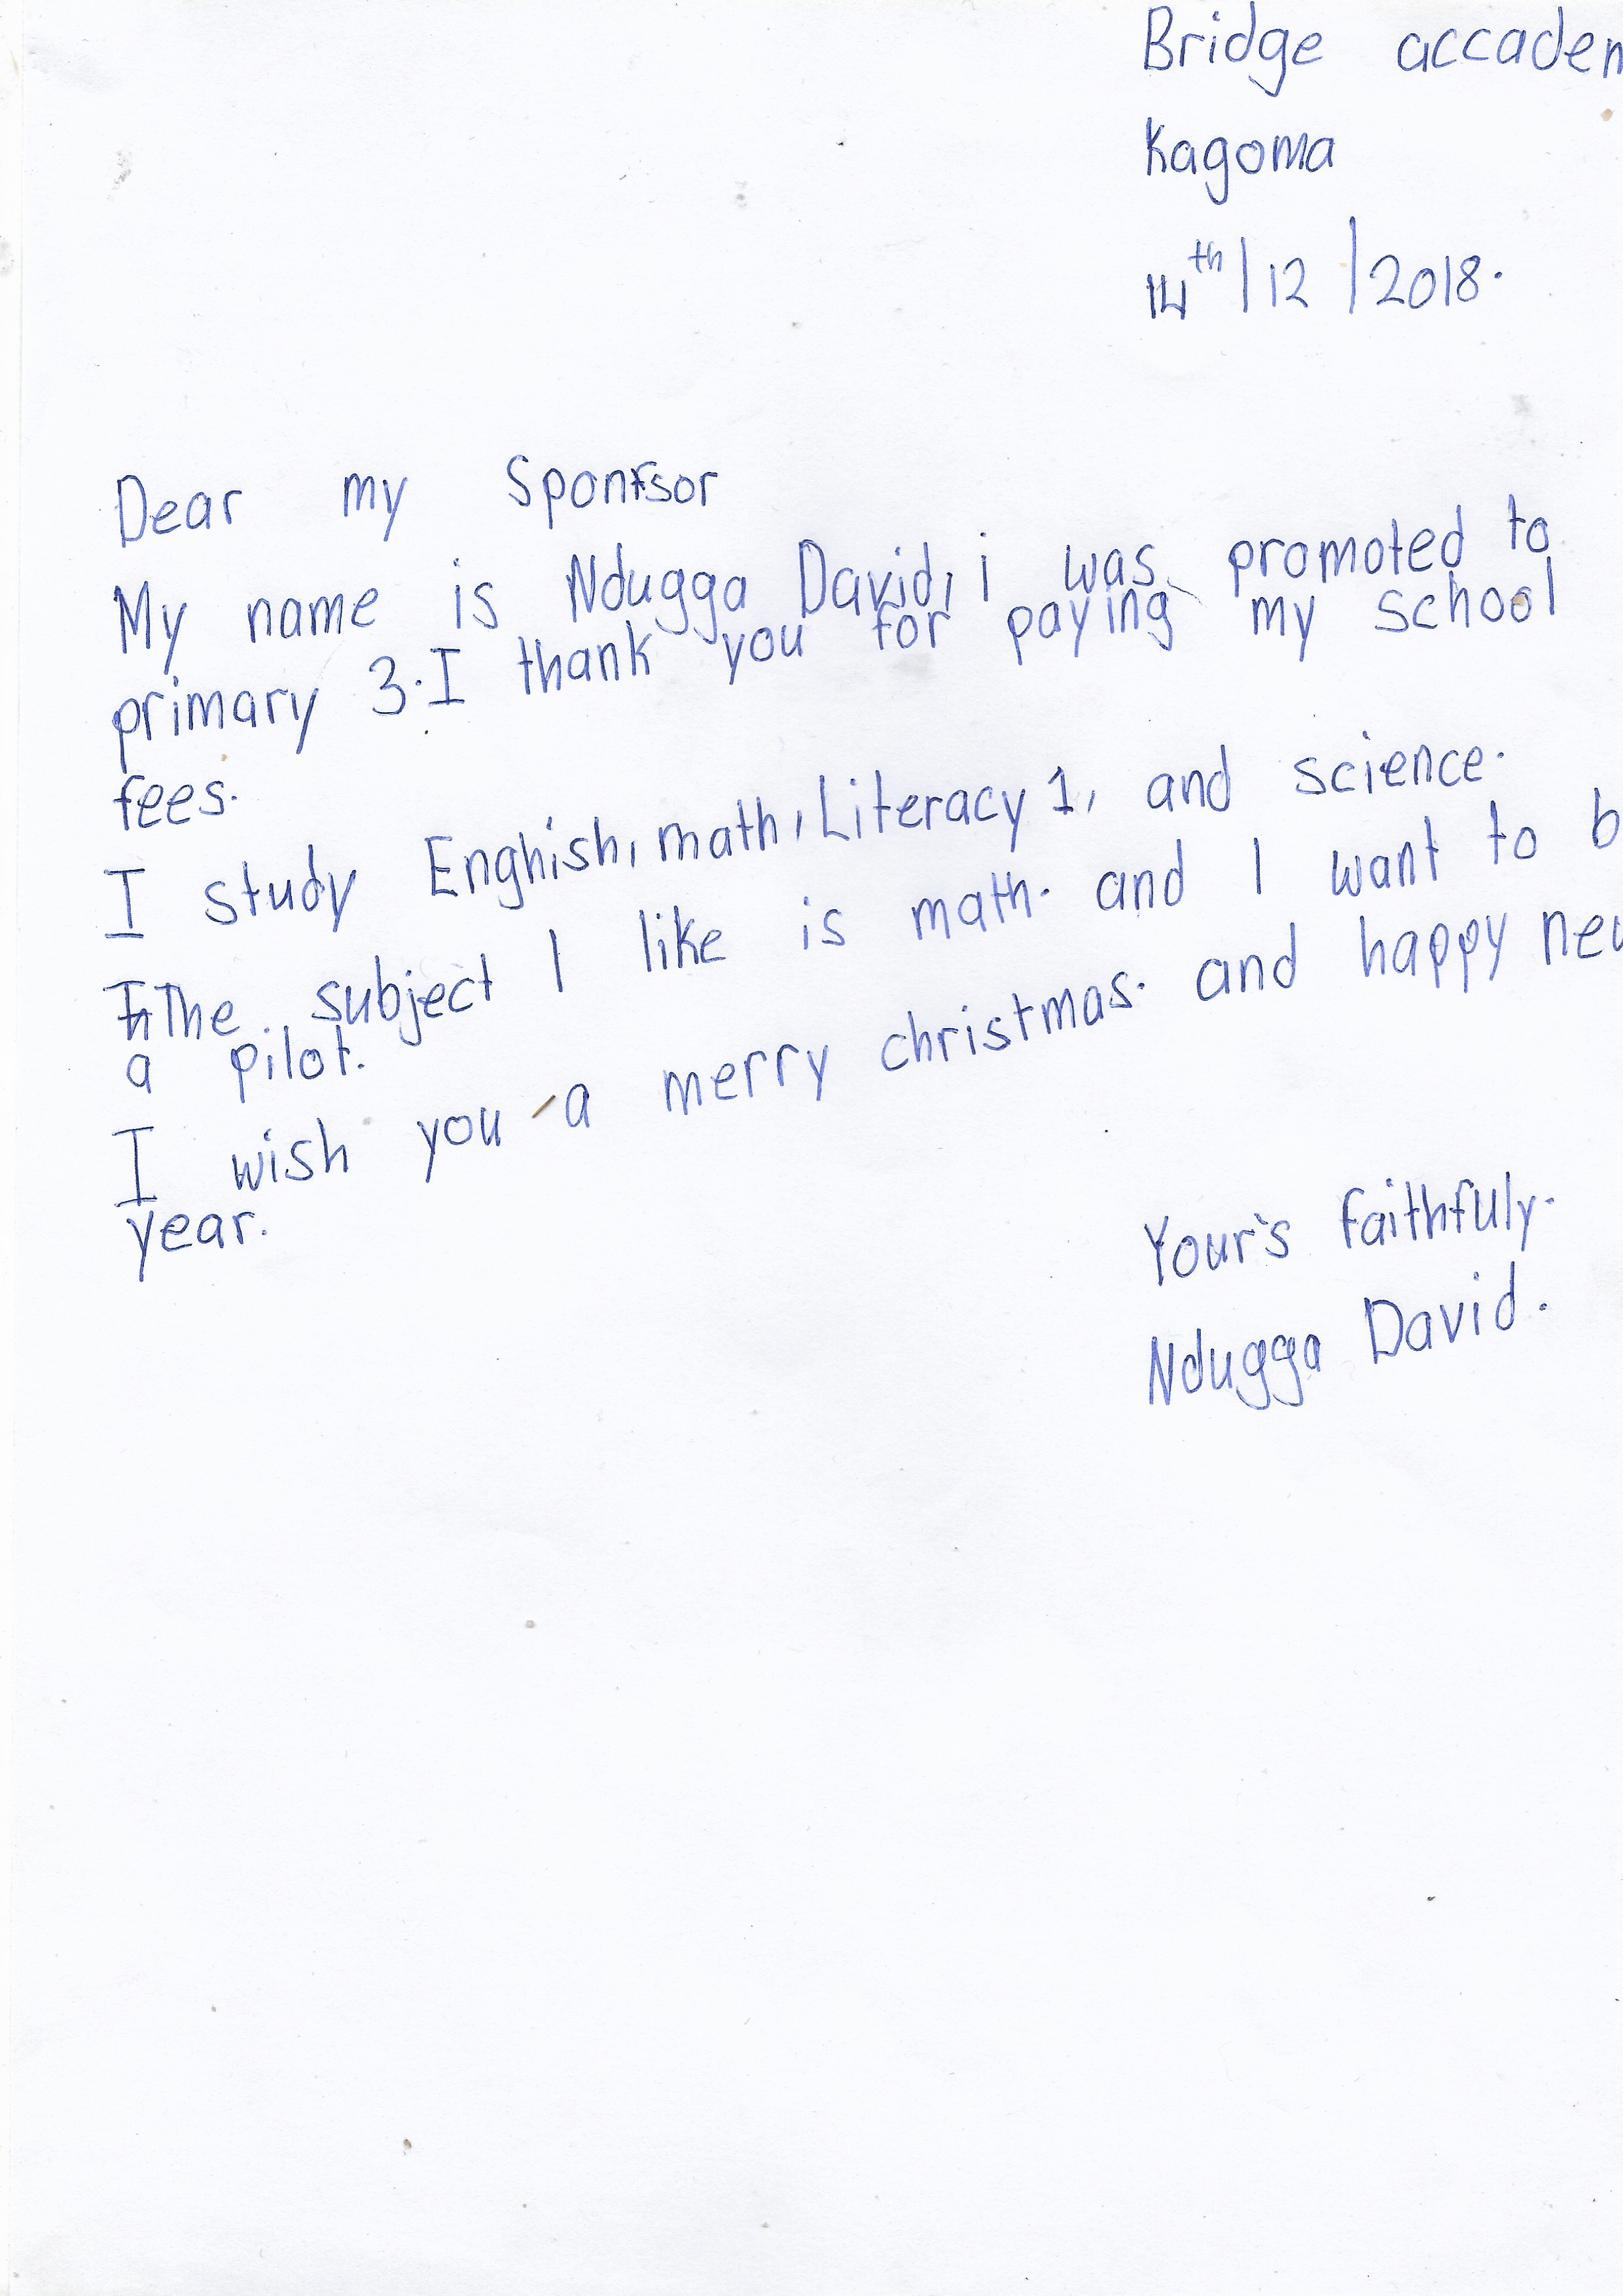 Bridge accadem
Kagoma
14th/12/2018.
Dear my Sponsor
My name is Ndugga David, i was promoted to
primary 3. I thank you for paying my school
fees.
I study Enghish, math, Literacy 1, and science.
The subject I like is math. and I want to b
a pilot.
I wish you a merry christmas. and happy new
year.
Your's faithfuly.
Ndugga David.